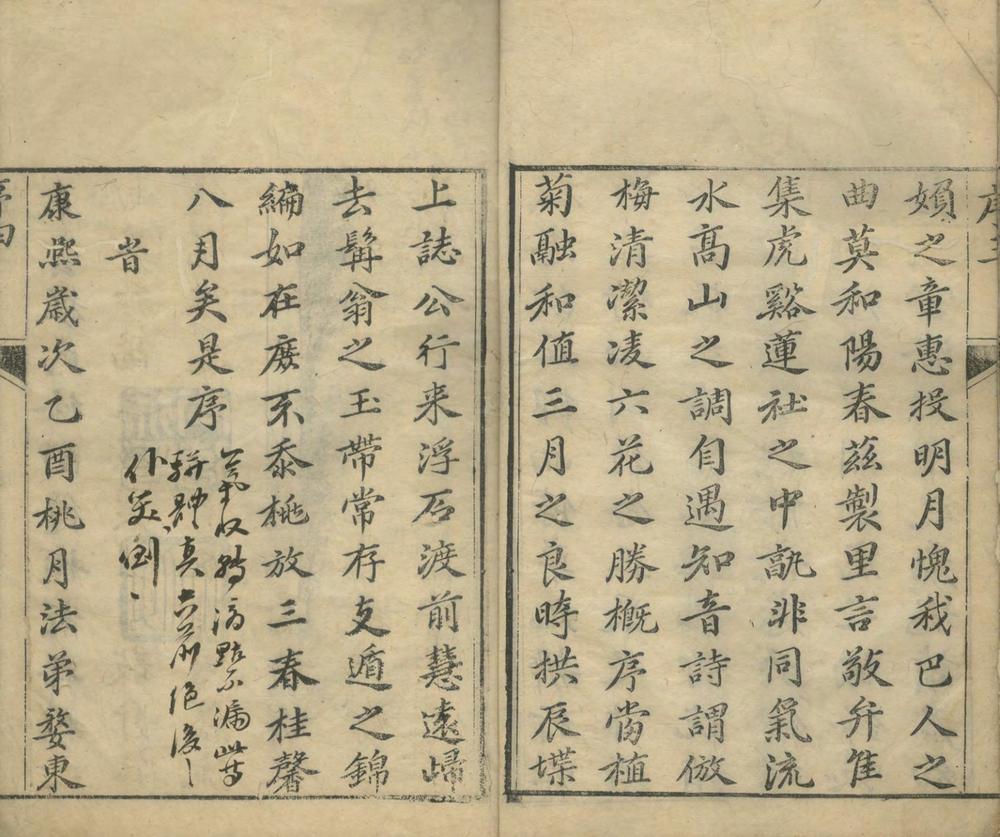 序三
嬪之章惠投明月愧我巴人之
曲莫和陽春茲製里言敬弁隹
集虎谿蓮社之中孰非同氣流
水高山之調自遇知音詩謂倣
梅清潔凌六花之勝概序當植
菊融和值三月之良時拱辰堞
上誌公行来浮石渡前慧遠歸
去髯翁之玉帶常存支遁之錦
編如在庶不忝桃放三春桂馨
八月矣是序
氣收粘滴點不漏此等
駢體真六前絕後
仆笑倒
旹
康熙歲次乙酉桃月法弟婺東
序四